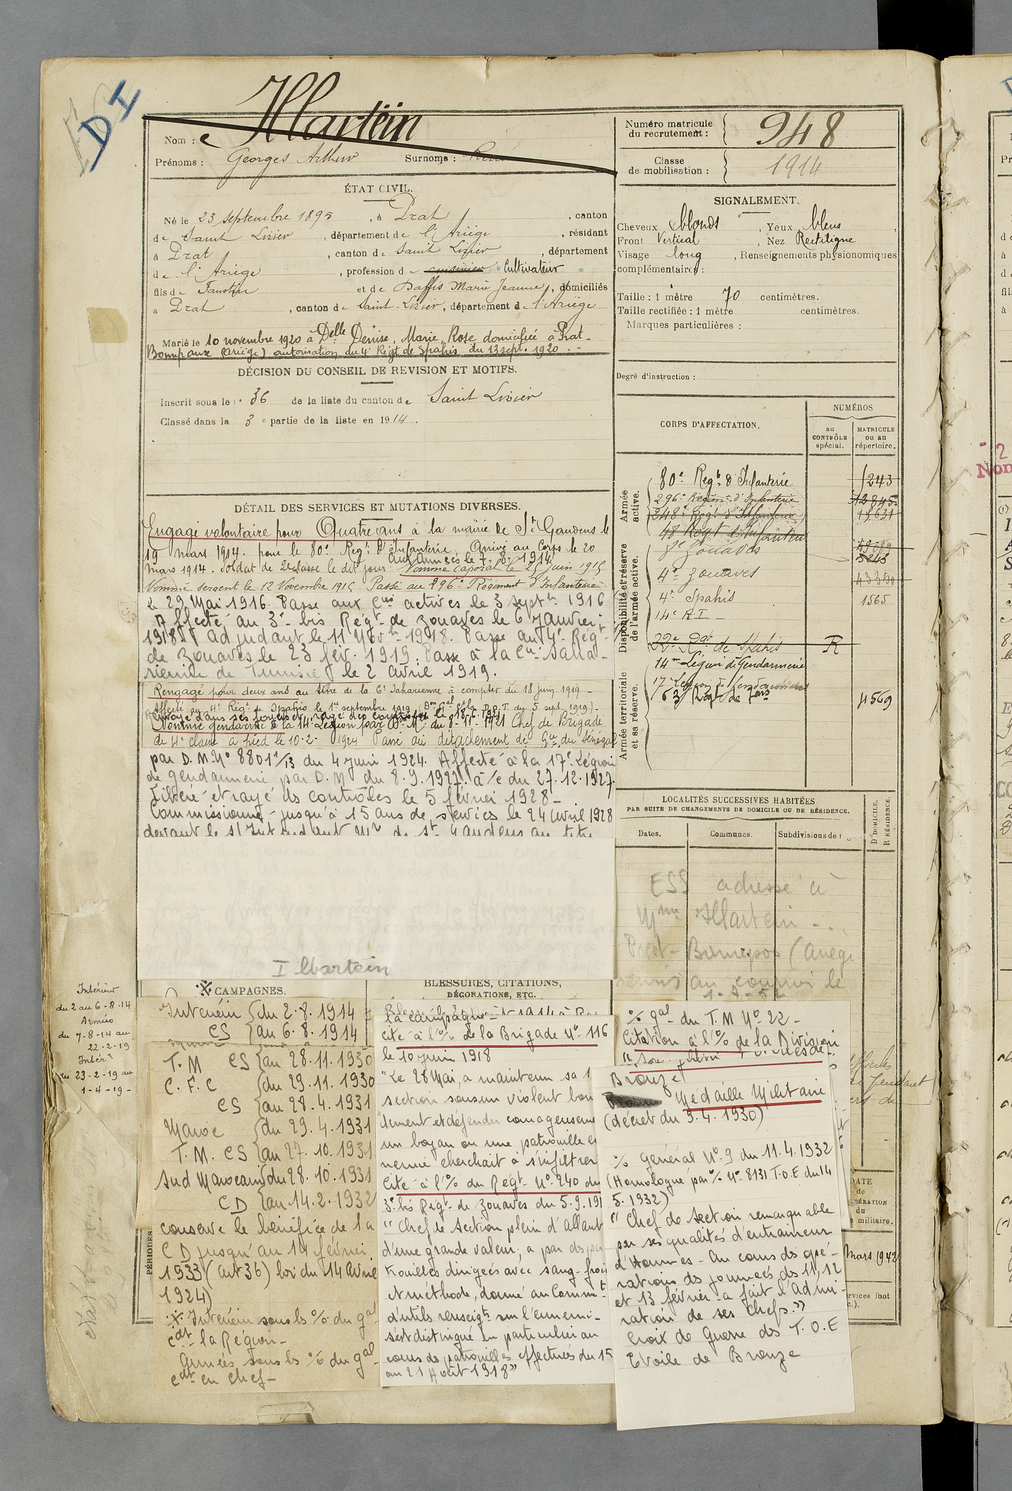 DI
Nom : Martein
Prénoms : Georges Arthur Surnoms :
Numéro matricule du recrutement : 948
Classe de mobilisation : 1914
ÉTAT CIVIL.
Né le 23 septembre 1895, à Prat, canton
de Saint Lizier, département de l'Ariège, résidant
à Prat, canton de Saint Lizier, département
de l'Ariège, profession de cuisinier Cultivateur
fils de Faustin et de Daffis Marie Jeanne, domiciliés
à Prat, canton de Saint-Lizier, département de l'Ariège
Marié le 10 novembre 1920 à Delle Denise, Marie Rose domiciliée à Prat-
Bonrepaux (Ariège) autorisation du 4e Régt de Spahis du 13 sept. 1920
DÉCISION DU CONSEIL DE REVISION ET MOTIFS.
Inscrit sous le no 36 de la liste du canton de Saint Lizier
Classé dans la 3e partie de la liste en 1914.
SIGNALEMENT.
Cheveux blonds, Yeux bleus,
Front Vertical, Nez Rectiligne
Visage long, Renseignements physionomiques
complémentaires :
Taille : 1 mètre 70 centimètres.
Taille rectifiée : 1 mètre centimètres.
Marques particulières :
Degré d'instruction :
CORPS D'AFFECTATION.
NUMÉROS
au CONTRÔLE spécial.
MATRICULE ou au répertoire.
Armée active.
80e Régt d'Infanterie 1243
296e Régim. d'Infanterie
248e Régt d'Infanterie
Disponibilité et réserve de l'armée active.
4e Zouaves
4e Spahis 1565
14e R.I.
22e de Spahis R
14e Légion de Gendarmerie
Armée territoriale et sa réserve.
4569
DÉTAIL DES SERVICES ET MUTATIONS DIVERSES.
Engagé volontaire pour Quatre ans à la mairie de St Gaudens le
19 mars 1914. pour le 80e Régt d'Infanterie. Arrivé au Corps le 20
mars 1914. Soldat de 2e classe le dit jour. Aux armées le 7.8.1914 Nommé caporal le 21 juin 1915
Nommé sergent le 12 Novembre 1915 Passé au 296e Régiment d'Infanterie
le 29 Mai 1916. Passé aux Cies actives le 3 septbre 1916
Affecté au 3e bis Régt de zouaves le 6 janvier
1918. Adjudant le 11 Novbre 1918. Passé au 4e Régt
de zouaves le 23 fév. 1919. Passé à la Cie Saha-
rienne de Tunisie le 2 avril 1919.
Rengagé pour deux ans au titre de la Cie Saharienne à compter du 18 juin 1919
Affecté au 4e Régt de Spahis le 1er septembre 1919
Nommé gendarme à la 14e Légion Chef de Brigade
de 4e classe à pied le 10-2-1924 Passé au détachement de Gie du Sénégal
par D.M No 8801 1/13 du 4 juin 1924. Affecté à la 17e Légion
de gendarmerie par D.M du 8.9.1927. à/c du 27.12.1927
Libéré et rayé des contrôles le 5 février 1928 -
Commissionné jusqu'à 15 ans de services le 24 avril 1928
devant le s/Intendant Mre de St Gaudens au titre
I Martein
LOCALITÉS SUCCESSIVES HABITÉES
PAR SUITE DE CHANGEMENTS DE DOMICILE OU DE RÉSIDENCE.
Dates. Communes. Subdivisions de r
D DOMICILE.
R RÉSIDENCE.
ESS adressé à
Mme Martein
Prat-Bonrepos (Ariège
Intérieur
du 2 au 6-8-14
Armées
du 7-8-14 au
22-2-19
Intér.
du 23-2-19 au
1-4-19-
CAMPAGNES.
Intérieur (du 2.8.1914
CS (au 6.8.1914
T.M CS (au 28.11.1930
C.F.C (du 29.11.1930
CS (au 28.4.1931
Maroc (du 29.4.1931
T.M. CS (au 27.10.1931
Sud Marocain (du 28.10.1931
CD (au 14.2.1932
conserve le bénéfice de la
CD jusqu'au 14 février
1933 (art 36) loi du 14 Avril
1924)
Intérieur sous les o/o du gal
cdt la Région -
Armées sous les o/o du gal
cdt en chef -
PÉRIODES
BLESSURES, CITATIONS,
DÉCORATIONS, ETC.
Cité à l'o/o de la Brigade No 116
le 10 juin 1918
"Le 28 Mai, a maintenu sa
section sous un violent bom
dement et défendu courageusement
un boyau où une patrouille en
nemie cherchait à s'infiltrer
Cité à l'o/o du Régt No 240 du
3e bis Régt de zouaves du 5.9.191
"Chef de section plein d'allant
d'une grande valeur, a par des pa
trouilles dirigées avec sang-froid
et méthode, donné au Commt
d'utils renseigts sur l'ennemi.
s'est distingué en particulier au
cours de patrouilles effectuées du 15
au 21 Août 1918"
o/o gal du T.M No 22 -
Citation à l'o/o de la Division
Bronze
Médaille Militaire
(décret du 3.4.1930)
o/o Général No 9 du 11.4.1932
(Homologué par o/o No 8131 T.O.E du 14
5.1932)
"Chef de section remarquable
par ses qualités d'entraîneur
d'Hommes - Au cours des opé-
rations des journées des 11, 12
et 13 février a fait l'admi-
ration de ses Chefs."
Croix de Guerre des T.O.E
Etoile de Bronze
mars 1942